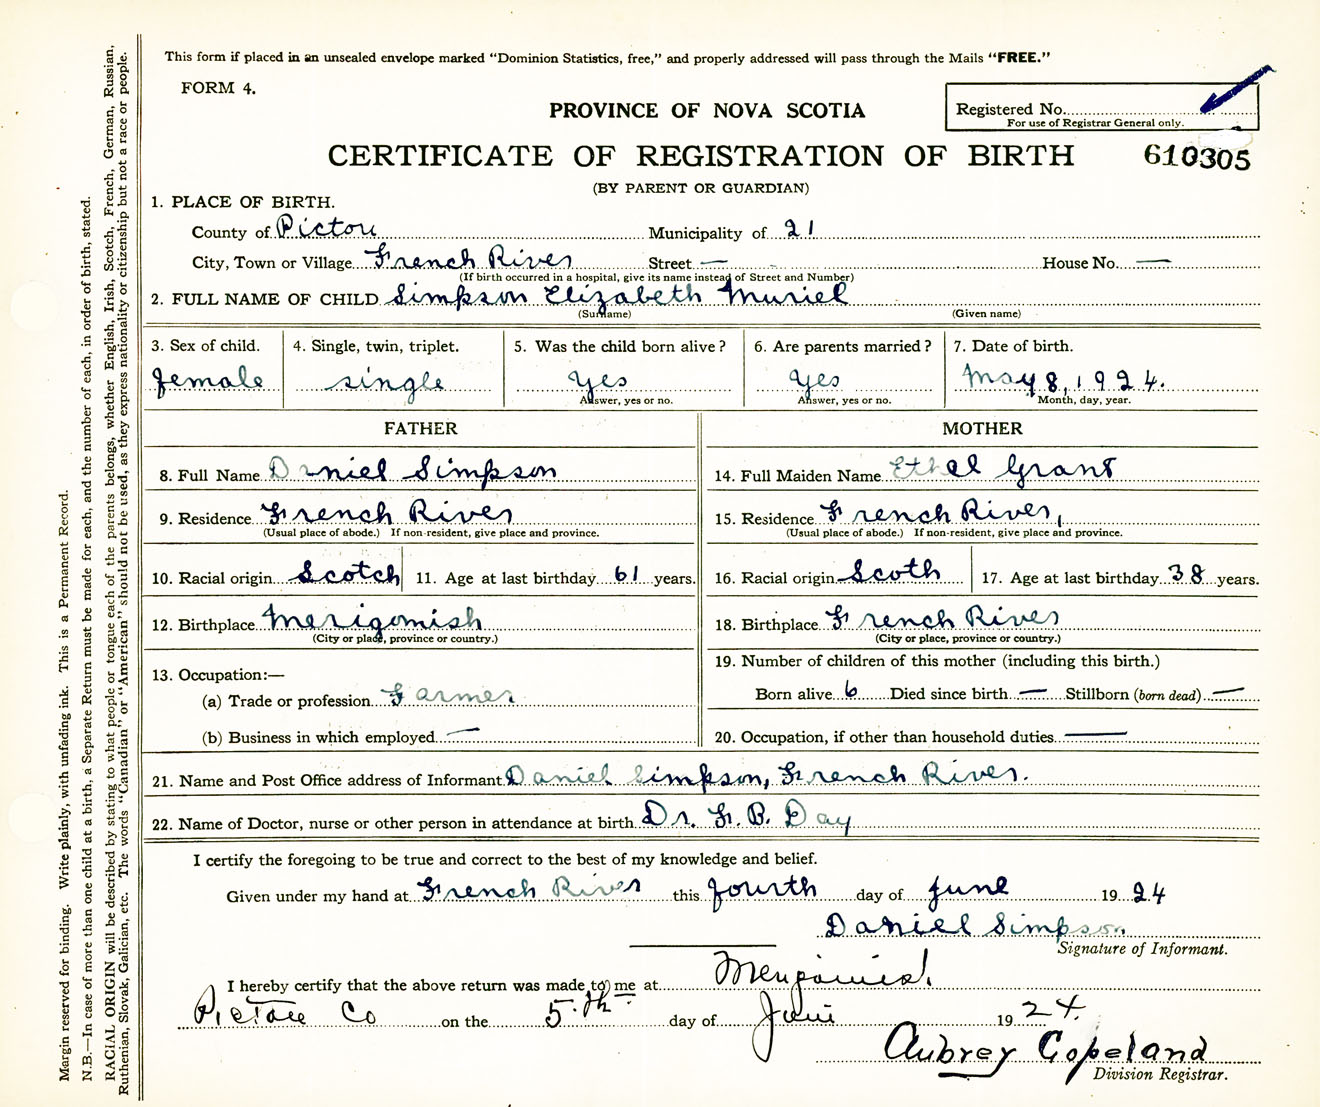 This form if placed in an unsealed envelope marked "Dominion Statistics, free," and properly addressed will pass through the Mails "FREE."
FORM 4.
PROVINCE OF NOVA SCOTIA
Registered No.
For use of Registrar General only.
CERTIFICATE OF REGISTRATION OF BIRTH 610305
(BY PARENT OR GUARDIAN)
1. PLACE OF BIRTH.
County of Pictou Municipality of 21
City, Town or Village French River Street — House No. —
(If birth occurred in a hospital, give its name instead of Street and Number)
2. FULL NAME OF CHILD Simpson Elizabeth Muriel
(Surname) (Given name)
3. Sex of child. 4. Single, twin, triplet. 5. Was the child born alive? 6. Are parents married? 7. Date of birth.
female single Yes Yes May 8, 1924.
Answer, yes or no. Answer, yes or no. Month, day, year.
FATHER MOTHER
8. Full Name Daniel Simpson 14. Full Maiden Name Ethel Grant
9. Residence French River 15. Residence French River,
(Usual place of abode.) If non-resident, give place and province. (Usual place of abode.) If non-resident, give place and province.
10. Racial origin Scotch 11. Age at last birthday 61 years. 16. Racial origin Scoth 17. Age at last birthday 38 years.
12. Birthplace Merigomish 18. Birthplace French River
(City or place, province or country.) (City or place, province or country.)
13. Occupation:— 19. Number of children of this mother (including this birth.)
(a) Trade or profession Farmer Born alive 6 Died since birth — Stillborn (born dead) —
(b) Business in which employed — 20. Occupation, if other than household duties —
21. Name and Post Office address of Informant Daniel Simpson, French River.
22. Name of Doctor, nurse or other person in attendance at birth Dr. F. B. Day
I certify the foregoing to be true and correct to the best of my knowledge and belief.
Given under my hand at French River this fourth day of June 1924
Daniel Simpson
Signature of Informant.
I hereby certify that the above return was made to me at
Pictou Co on the 5th day of 1924.
Aubrey Copeland
Division Registrar.
Margin reserved for binding. Write plainly, with unfading ink. This is a Permanent Record.
N.B.—In case of more than one child at a birth, a Separate Return must be made for each, and the number of each, in order of birth, stated.
RACIAL ORIGIN will be described by stating to what people or tongue each of the parents belongs, whether English, Irish, Scotch, French, German, Russian,
Ruthenian, Slovak, Galician, etc. The words "Canadian" or "American" should not be used, as they express nationality or citizenship but not a race or people.